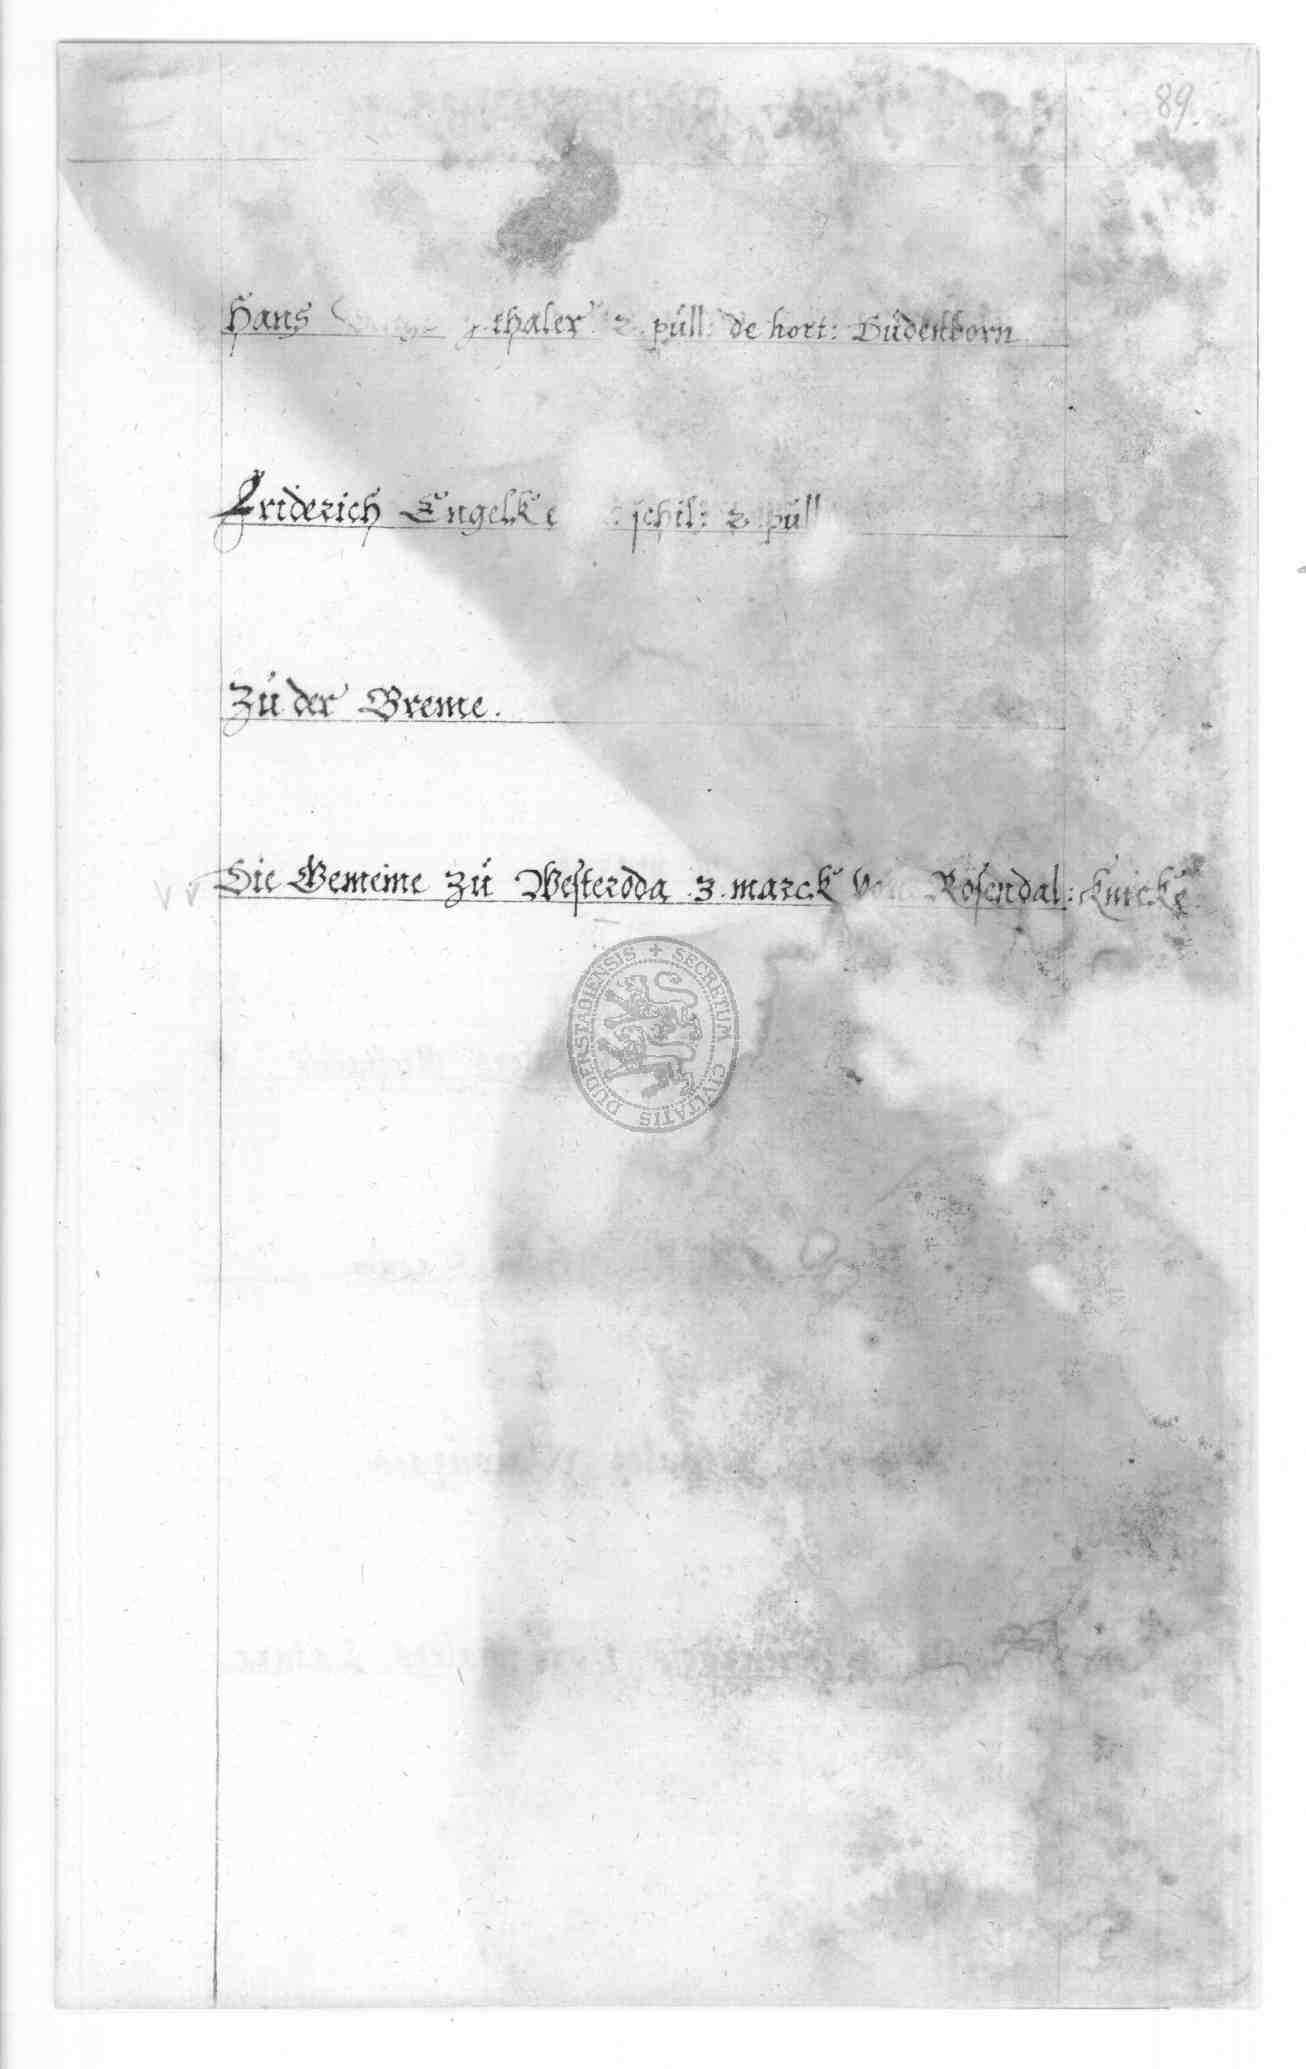 89.
Hans thaler 2 püll: de hort: Südenborn
Friderich Engelke schil: 2 püll
Zü der Breme.
Die Gemeine zü Westeroda .3. marck Rosendal: Knicke
SECRETUM CIVITATIS DUDERSTADIENSIS